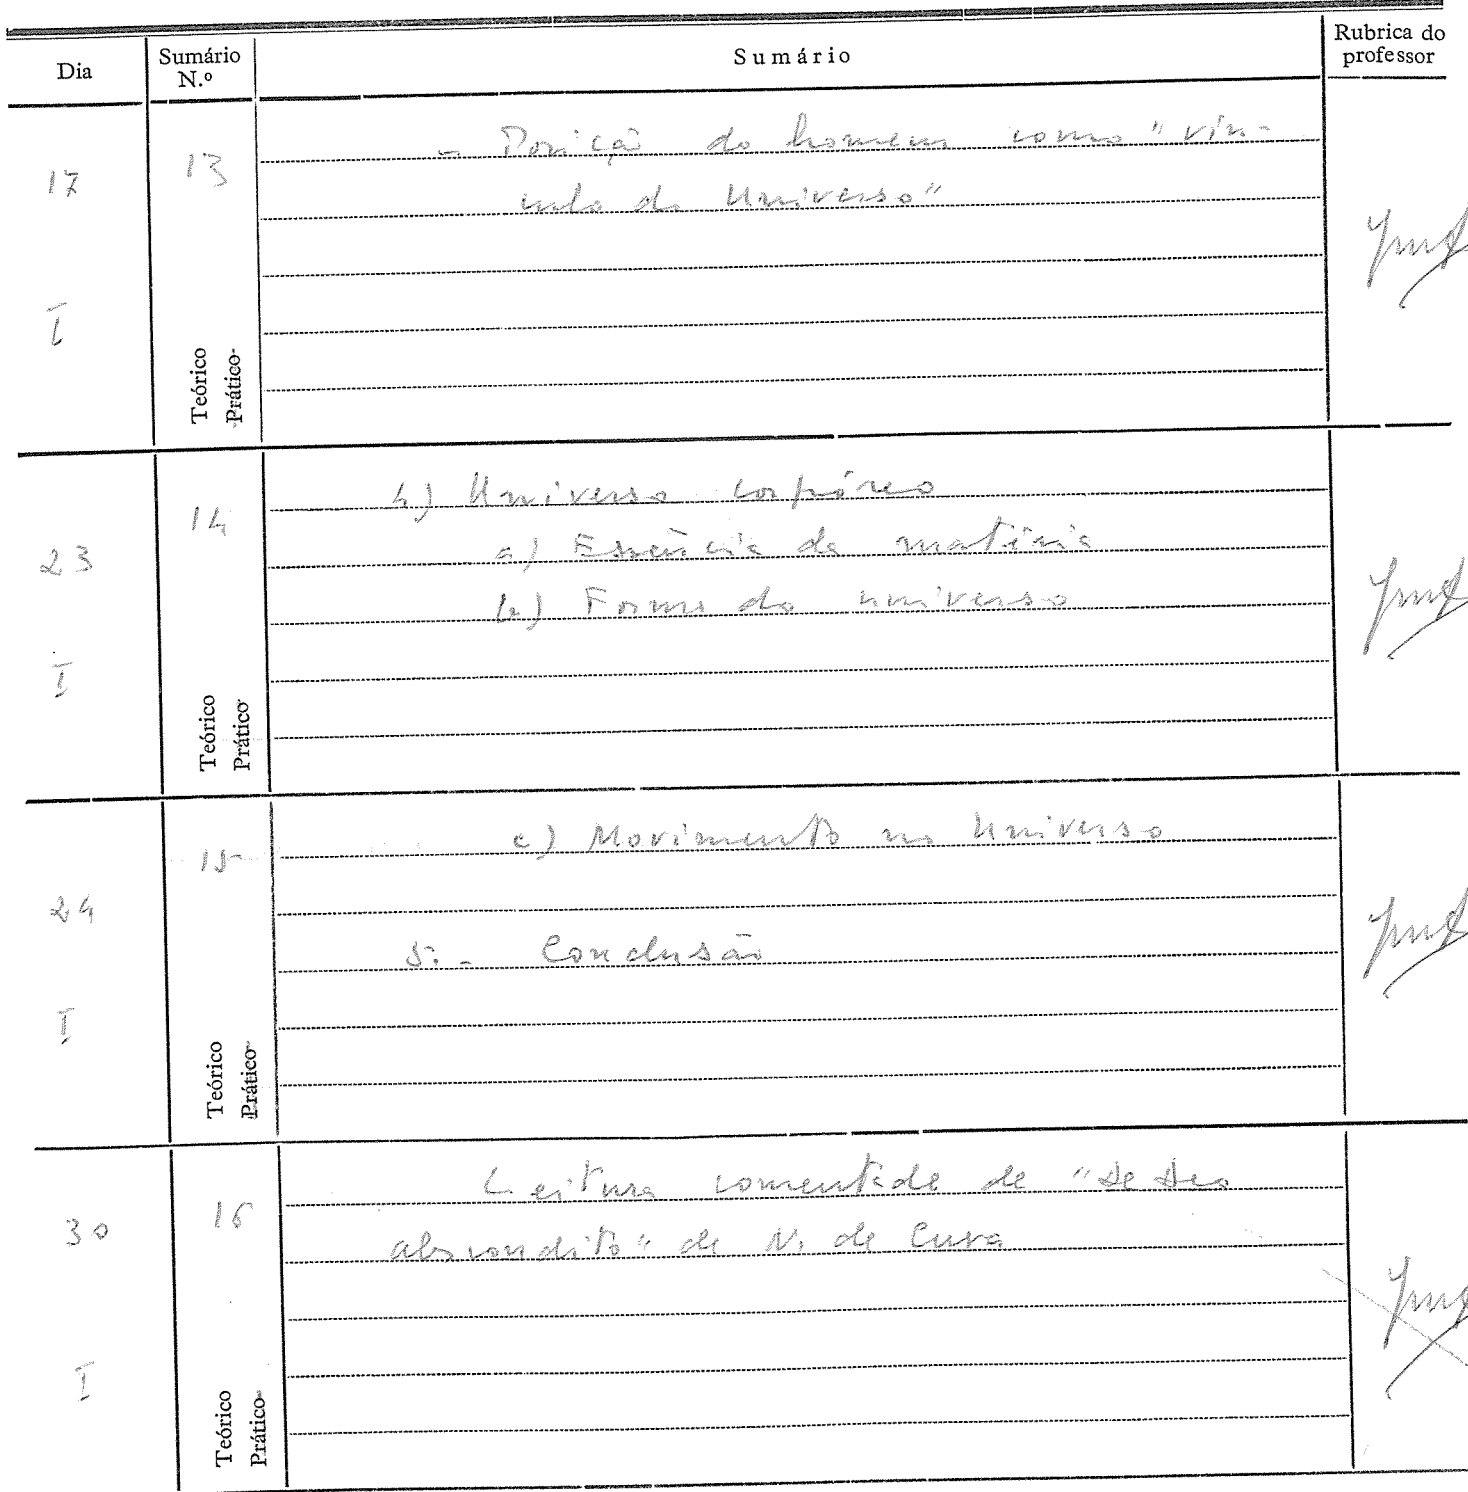 Dia Sumário N.º Sumário Rubrica do professor
17 13 - Posição do homem como "vín-
culo do Universo"
I
Teórico
Prático
23 14 4) Universo corpóreo
a) Essência da matéria
b) Forma do universo
I
Teórico
Prático
24 15 c) Movimento no Universo
5. - Conclusão
I
Teórico
Prático
30 16 Leitura comentada de "De Deo
abscondito" de N. de Cusa
I
Teórico
Prático